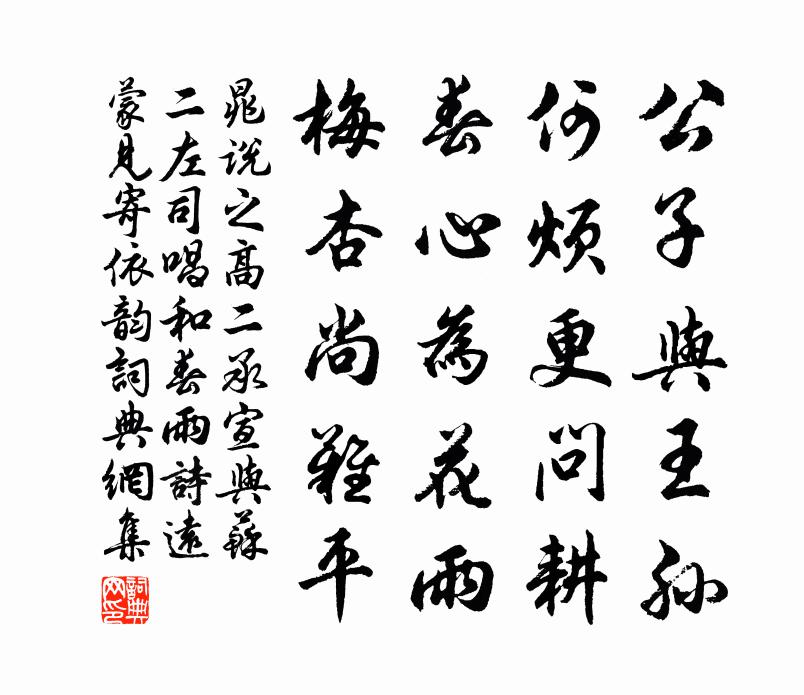 公子與王孫
何煩更問耕
春心為花雨
梅杏尚難平
晁說之高二承宣與蘇
二左司唱和春雨詩遠
蒙見寄依韵詞典網集
詞典網印